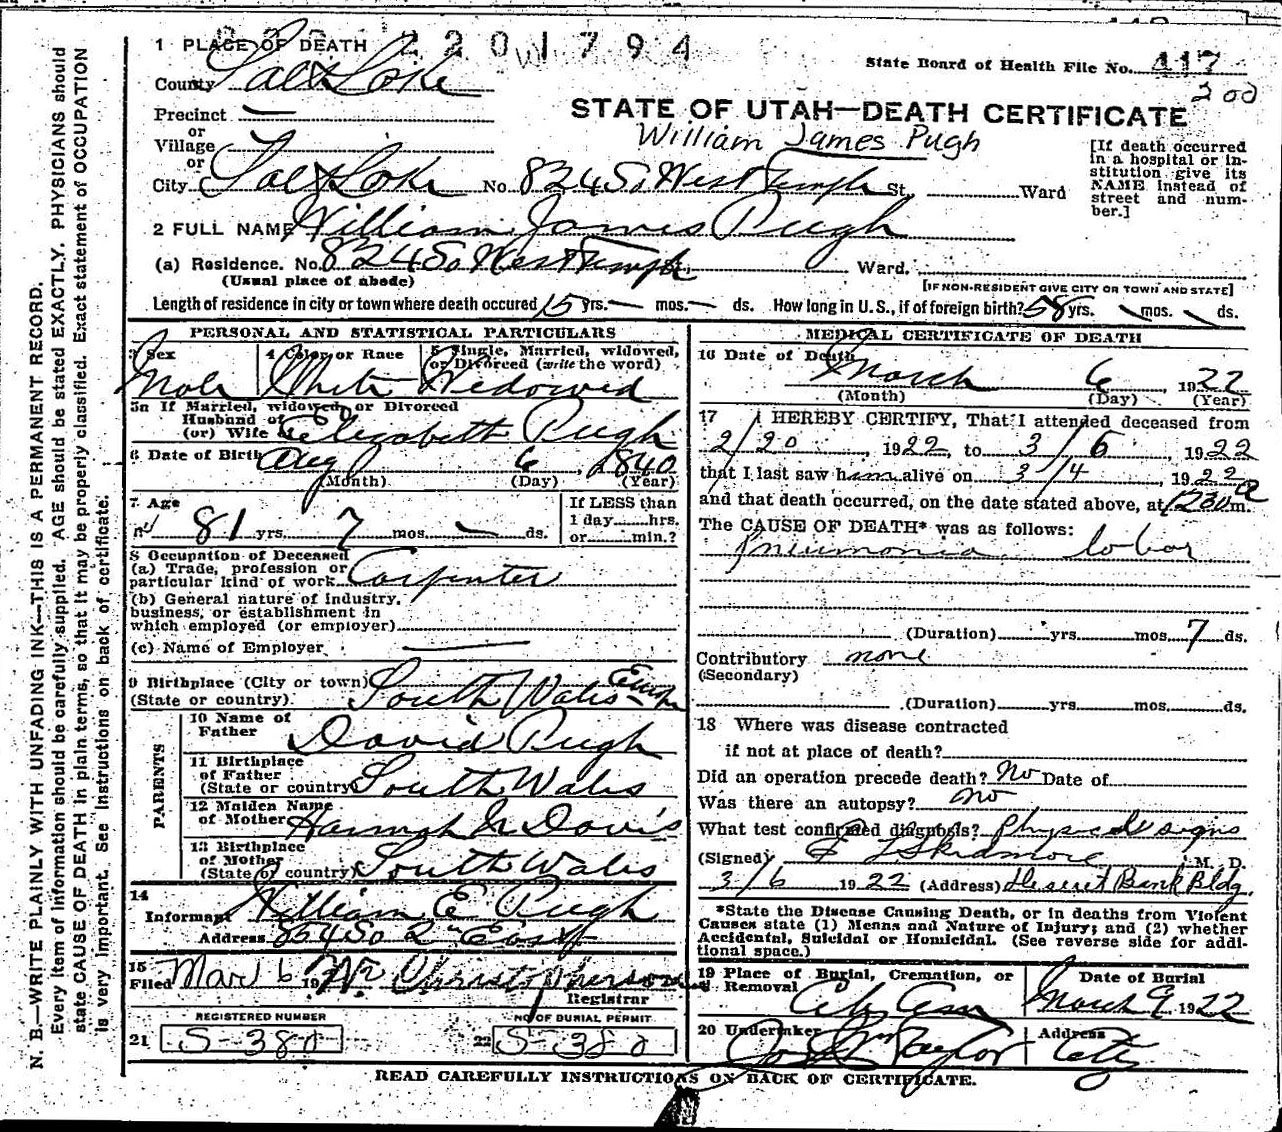 2201794
1 PLACE OF DEATH
State Board of Health File No. 417
County Salt Lake
200
Precinct —
STATE OF UTAH—DEATH CERTIFICATE
or
William James Pugh
Village
or
City Salt Lake No. 824 So West Temple St., Ward
[If death occurred
in a hospital or in-
stitution give its
NAME instead of
street and num-
ber.]
2 FULL NAME William James Pugh
(a) Residence. No. 824 So West Temple Ward.
(Usual place of abode)
[IF NON-RESIDENT GIVE CITY OR TOWN AND STATE]
Length of residence in city or town where death occured 15 yrs. — mos. — ds. How long in U.S., if of foreign birth? 58 yrs. — mos. — ds.
PERSONAL AND STATISTICAL PARTICULARS
3 Sex
4 Color or Race
5 Single, Married, widowed,
or Divorced (write the word)
Male White Widowed
5a If Married, widowed, or Divorced
Husband of
(or) Wife of Elizabeth Pugh
6 Date of Birth Aug 6, 1840
(Month) (Day) (Year)
7 Age
81 yrs. 7 mos. — ds.
If LESS than
1 day......hrs.
or......min.?
8 Occupation of Deceased
(a) Trade, profession or
particular kind of work Carpenter
(b) General nature of industry,
business, or establishment in
which employed (or employer)
(c) Name of Employer —
9 Birthplace (City or town)
(State or country). South Wales
PARENTS
10 Name of
Father David Pugh
11 Birthplace
of Father
(State or country) South Wales
12 Maiden Name
of Mother Hannah Davis
13 Birthplace
of Mother
(State or country) South Wales
14
Informant William E Pugh
Address 854 So 2nd East
15
Filed Mar 6 19 Christopherson
Registrar
REGISTERED NUMBER
NO OF BURIAL PERMIT
21 S-380 22 S-380
MEDICAL CERTIFICATE OF DEATH
16 Date of Death
March 6, 1922
(Month) (Day) (Year)
17 I HEREBY CERTIFY, That I attended deceased from
2/20, 1922, to 3/6, 1922
that I last saw him alive on 3/4, 1922
and that death occurred, on the date stated above, at 1230 a m.
The CAUSE OF DEATH* was as follows:
pneumonia lobar
(Duration) yrs. mos. 7 ds.
Contributory none
(Secondary)
(Duration) yrs. mos. ds.
18 Where was disease contracted
if not at place of death?
Did an operation precede death? No Date of
Was there an autopsy? no
What test confirmed diagnosis? Physical signs
(Signed) E L Skidmore M. D.
3/6 1922 (Address) Deseret Bank Bldg.
*State the Disease Causing Death, or in deaths from Violent
Causes state (1) Means and Nature of Injury; and (2) whether
Accidental, Suicidal or Homicidal. (See reverse side for addi-
tional space.)
19 Place of Burial, Cremation, or
Removal City Cem
Date of Burial
March 9 1922
20 Undertaker
Jos Wm Taylor
Address
City
READ CAREFULLY INSTRUCTIONS ON BACK OF CERTIFICATE.
N. B.—WRITE PLAINLY WITH UNFADING INK—THIS IS A PERMANENT RECORD.
Every item of information should be carefully supplied. AGE should be stated EXACTLY. PHYSICIANS should
state CAUSE OF DEATH in plain terms, so that it may be properly classified. Exact statement of OCCUPATION
is very important. See Instructions on back of certificate.